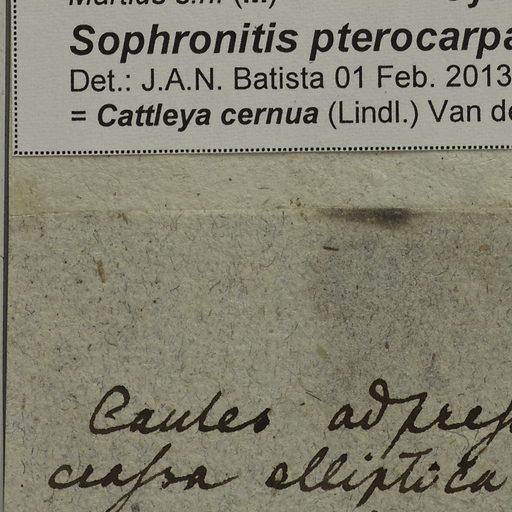 Martius s.n. (...)
Sophronitis pterocarpa
Det.: J.A.N. Batista 01 Feb. 2013
= Cattleya cernua (Lindl.) Van de
Caules adpres
crassa elliptica